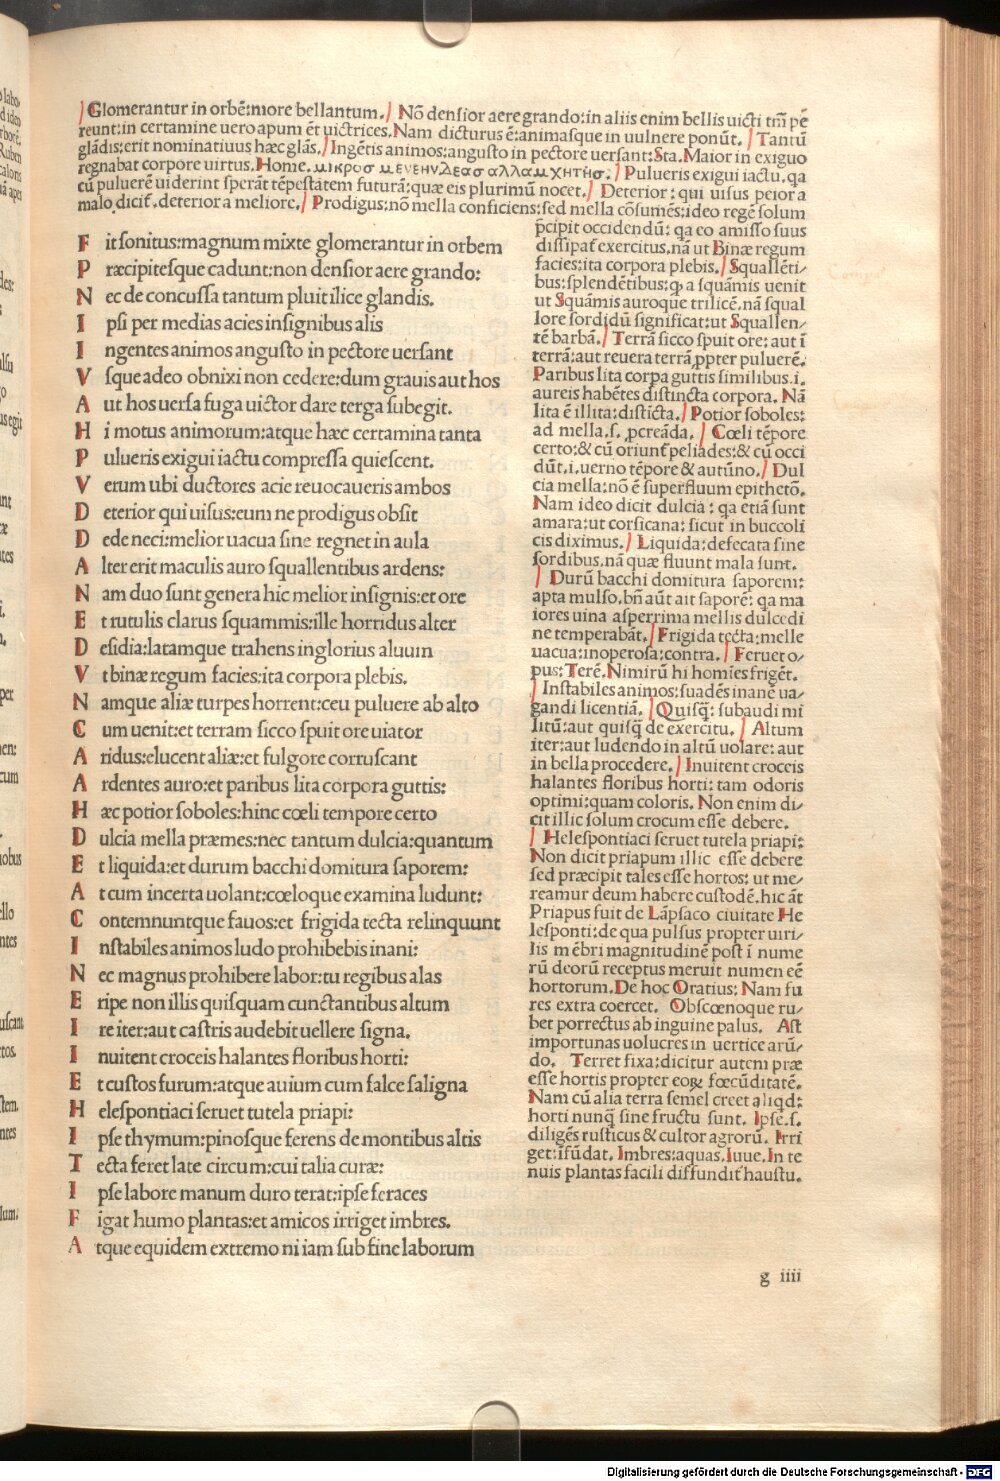 Glomerantur in orbē:more bellantum. Nō densior aere grando:in aliis enim bellis uicti tm̄ pe
reunt:in certamine uero apum ēt uictrices. Nam dicturus ē:animasque in uulnere ponūt. Tantū
glādis:erit nominatiuus hæc glās. Ingētis animos:angusto in pectore uersant:Sta. Maior in exiguo
regnabat corpore uirtus. Home. μικροσ μενενην δεασ αλλα μχητησ. Pulueris exigui iactu, qa
cū puluerē uiderint sperāt tēpestatem futurā:quæ eis plurimū nocet. Deterior: qui uisus peior a
malo dicit̄, deterior a meliore. Prodigus:nō mella conficiens:sed mella cōsumēs:ideo regē solum
p̄cipit occidendū: qa eo amisso suus
dissipat̄ exercitus, nā ut Binæ regum
facies:ita corpora plebis. Squallēti/
bus:splendētibus: ꝙ a squāmis uenit
ut Squāmis auroque trilicē, nā squal
lore sordidū significat:ut Squallen/
tē barbā. Terrā sicco spuit ore: aut ī
terrā:aut reuera terrā ꝓpter puluerē.
Paribus lita corpa guttis similibus.i.
aureis habētes distincta corpora. Nā
lita ē illita:disticta. Potior soboles:
ad mella.s. ꝓcreāda. Cœli tēpore
certo:& cū oriunt̄ peliades:& cū occi
dūt.i.uerno tēpore & autūno. Dul
cia mella:nō ē superfluum epithetō.
Nam ideo dicit dulcia: qa etiā sunt
amara:ut corsicana: sicut in buccoli
cis diximus. Liquida:defecata sine
sordibus, nā quæ fluunt mala sunt.
Durū bacchi domitura saporem:
apta mulso, bn̄ aūt ait saporē: qa ma
iores uina asperrima mellis dulcedi
ne temperabāt. Frigida tecta:melle
uacua:inoperosa:contra. Feruet o/
pus: Terē. Nimirū hi homīes frigēt.
Instabiles animos:suadēs inanē ua/
gandi licentiā. Quisq̄: subaudi mi
litū:aut quisq̄ de exercitu. Altum
iter:aut ludendo in altū uolare: aut
in bella procedere. Inuitent croceis
halantes floribus horti: tam odoris
optimi:quam coloris. Non enim di/
cit illic solum crocum esse debere.
Helespontiaci seruet tutela priapi:
Non dicit priapum illic esse debere
sed præcipit tales esse hortos: ut me/
reamur deum habere custodē. hic āt
Priapus fuit de Lāpsaco ciuitate He
lesponti:de qua pulsus propter uiri/
lis mēbri magnitudinē post ī nume
rū deorū receptus meruit numen eē
hortorum. De hoc Oratius: Nam fu
res extra coercet. Obscœnoque ru/
ber porrectus ab inguine palus. Ast
importunas uolucres in uertice arū/
do. Terret fixa:dicitur autem præ
esse hortis propter eoꝝ fœcūditatē.
Nam cū alia terra semel creet aliqd:
horti nunq̄ sine fructu sunt. Ipse.s.
diligēs rusticus & cultor agrorū. Irri
get:īfūdat. Imbres:aquas. Iuue. In te
nuis plantas facili diffundit haustu.
F it sonitus:magnum mixte glomerantur in orbem
P ræcipitesque cadunt:non densior aere grando:
N ec de concussa tantum pluit ilice glandis.
I psi per medias acies insignibus alis
I ngentes animos angusto in pectore uersant
V sque adeo obnixi non cedere:dum grauis aut hos
A ut hos uersa fuga uictor dare terga subegit.
H i motus animorum:atque hæc certamina tanta
P ulueris exigui iactu compressa quiescent.
V erum ubi ductores acie reuocaueris ambos
D eterior qui uisus:eum ne prodigus obsit
D ede neci:melior uacua sine regnet in aula
A lter erit maculis auro squallentibus ardens:
N am duo sunt genera hic melior insignis:et ore
E t rutulis clarus squammis:ille horridus alter
D esidia:latamque trahens inglorius aluum
V t binæ regum facies:ita corpora plebis.
N amque aliæ turpes horrent:ceu puluere ab alto
C um uenit:et terram sicco spuit ore uiator
A ridus:elucent aliæ:et fulgore corruscant
A rdentes auro:et paribus lita corpora guttis:
H æc potior soboles:hinc cœli tempore certo
D ulcia mella præmes:nec tantum dulcia:quantum
E t liquida:et durum bacchi domitura saporem:
A t cum incerta uolant:cœloque examina ludunt:
C ontemnuntque fauos:et frigida tecta relinquunt
I nstabiles animos ludo prohibebis inani:
N ec magnus prohibere labor:tu regibus alas
E ripe non illis quisquam cunctantibus altum
I re iter:aut castris audebit uellere signa.
I nuitent croceis halantes floribus horti:
E t custos furum:atque auium cum falce saligna
H elespontiaci seruet tutela priapi:
I pse thymum:pinosque ferens de montibus altis
T ecta feret late circum:cui talia curæ:
I pse labore manum duro terat:ipse feraces
F igat humo plantas:et amicos irriget imbres.
A tque equidem extremo ni iam sub fine laborum
g iiii
Digitalisierung gefördert durch die Deutsche Forschungsgemeinschaft - DFG